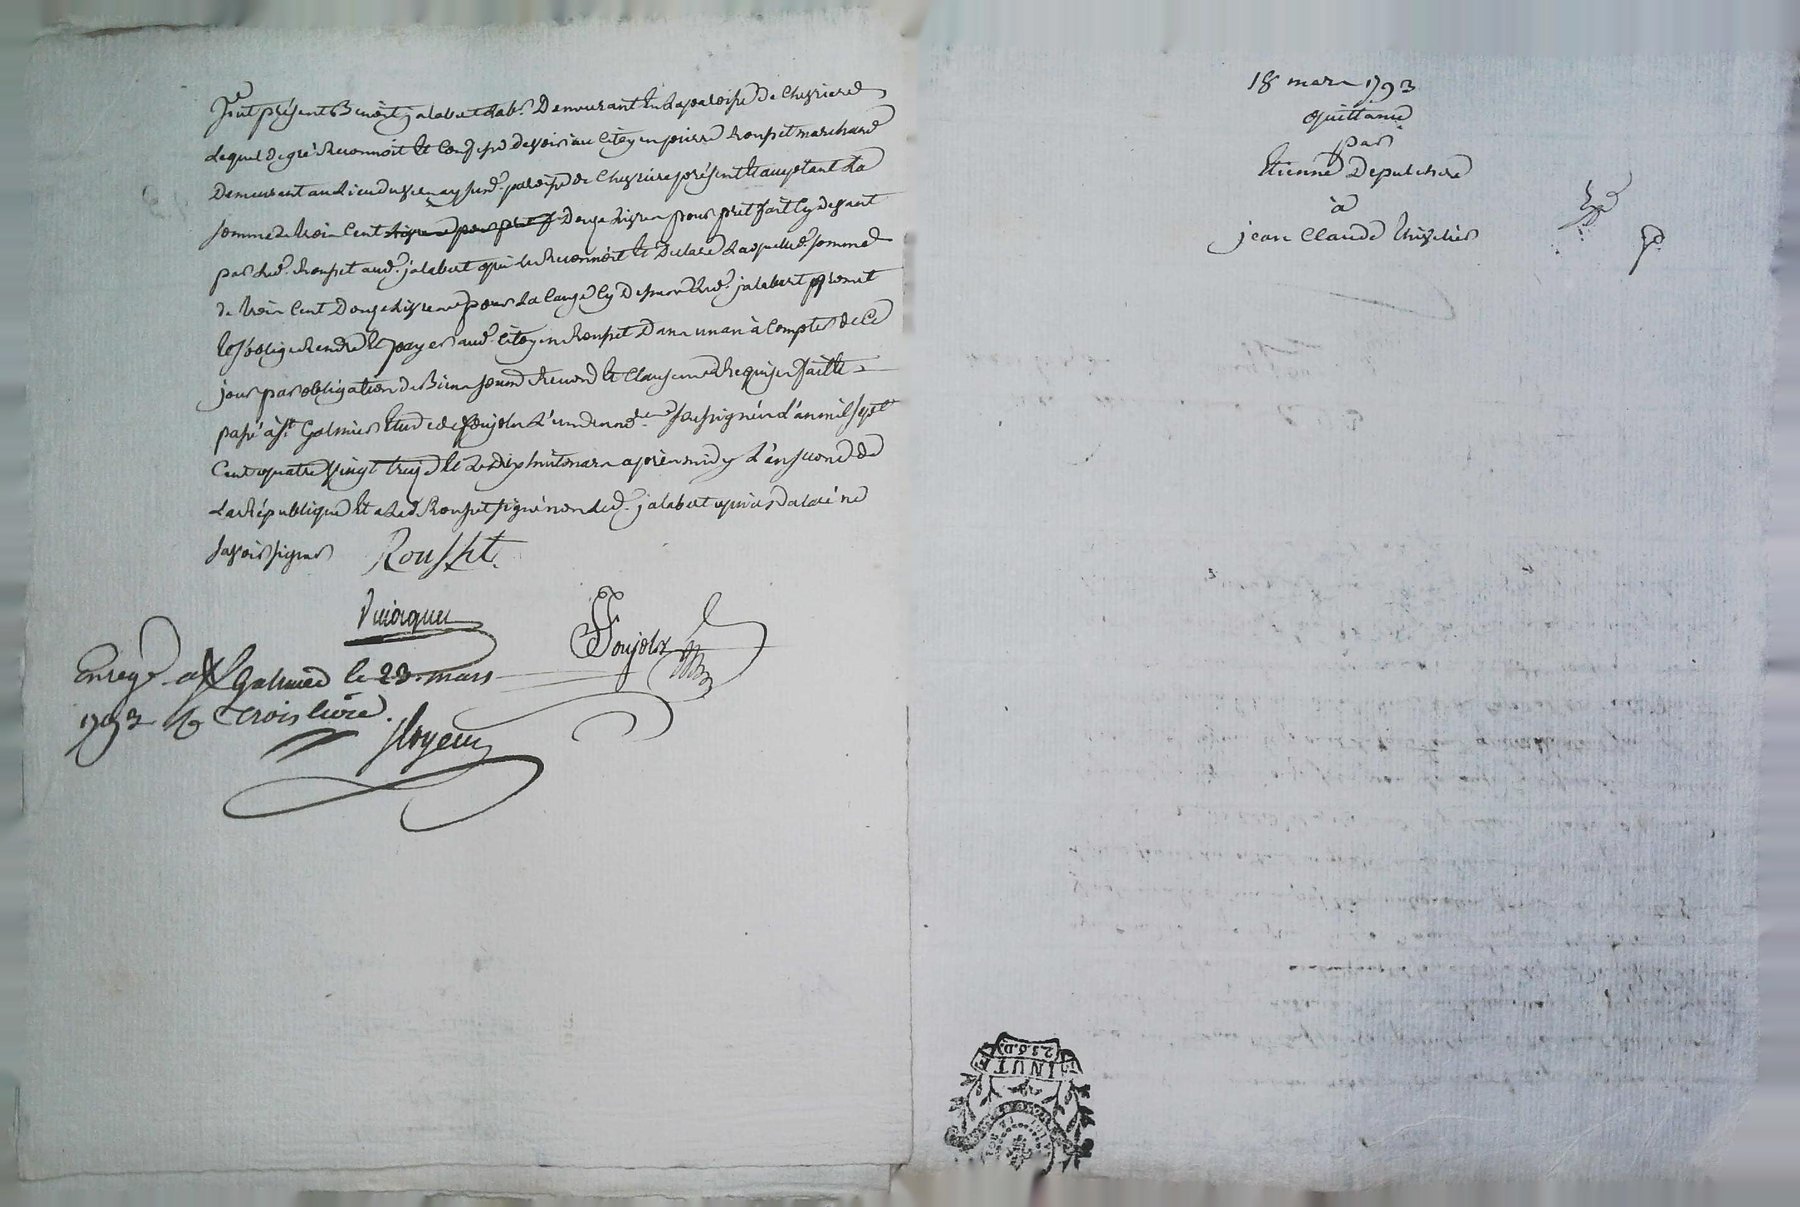 fut présent Benoît jalabert lab.r Demeurant En la paroisse De Chevrieres
Lequel de gré Reconnoit Et Confesse Devoir au Citoyen pierre Rousset marchand
Demeurant au Lieu du susd. paroisse De Chevriere présent Et acceptant La
somme de trois Cent Douze Livres pour prêt fait Cy devant
par led. Rousset aud. jalabert qui le Reconnoit Et Declare Laquelle somme
de trois Cent Douze Livres pour La Cause Cy Dessus led. jalabert promet
Et s'oblige Rendre Et payer aud. Citoyen Rousset Dans un an à Compter de Ce
jour par obligation de Biens Et Clauses Requises fait Et
passé à St Galmier Etude de Poujolx L'un des no.res soussignés L'an mil sept
Cent quatre vingt treize Et Le dix huit mars après midy L'an second de
La République Et a Led. Rousset signé non Led. jalabert qui a déclaré ne
savoir signer Rousset
Poujolx
Enreg.é a St Galmier le 23 mars
1793 R trois livre.
18 mars 1793
Quittance
par
Etienne Depulchere
à
jean Claude
MINUTE